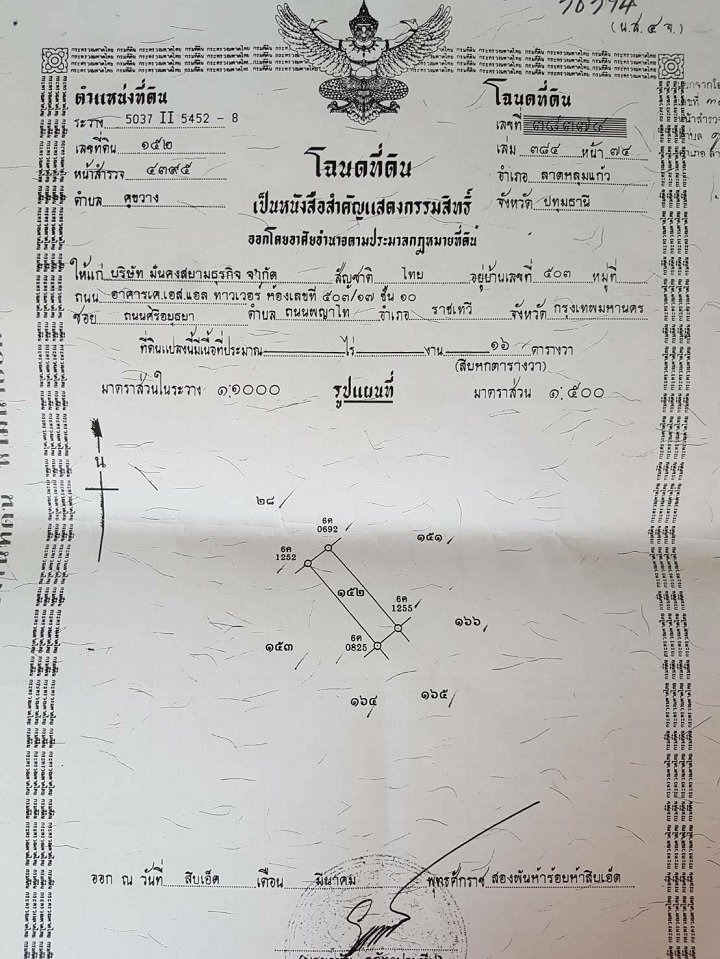 (น.ส. ๔ จ.)
ตำแหน่งที่ดิน
ระวาง 5037 II 5452 - 8
เลขที่ดิน ๑๕๒
หน้าสำรวจ ๔๓๙๕
ตำบล คูขวาง
โฉนดที่ดิน
เลขที่
เล่ม ๓๘๔ หน้า ๗๔
อำเภอ ลาดหลุมแก้ว
จังหวัด ปทุมธานี
โฉนดที่ดิน
เป็นหนังสือสำคัญแสดงกรรมสิทธิ์
ออกโดยอาศัยอำนาจตามประมวลกฎหมายที่ดิน
ให้แก่ บริษัท มั่นคงสยามธุรกิจ จำกัด สัญชาติ ไทย อยู่บ้านเลขที่ ๕๐๓ หมู่ที่
ถนน อาคารเค.เอส.แอล ทาวเวอร์ ห้องเลขที่ ๕๐๓/๑๗ ชั้น ๑๐
ซอย ถนนศรีอยุธยา ตำบล ถนนพญาไท อำเภอ ราชเทวี จังหวัด กรุงเทพมหานคร
ที่ดินแปลงนี้มีเนื้อที่ประมาณ ไร่ งาน ๑๖ ตารางวา
(สิบหกตารางวา)
มาตราส่วนในระวาง ๑:๑๐๐๐ รูปแผนที่ มาตราส่วน ๑:๕๐๐
น
๒๘
6ค
0692
๑๕๑
6ค
1252
๑๕๒
6ค
1255
๑๖๖
6ค
0825
๑๕๓
๑๖๔
๑๖๕
ออก ณ วันที่ สิบเอ็ด เดือน มีนาคม พุทธศักราช สองพันห้าร้อยห้าสิบเอ็ด